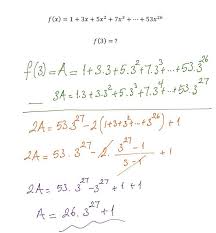 f(x) = 1 + 3x + 5x² + 7x³ + ⋯ + 53x²⁶
f(3) = ?
f(3)=A=1+3.3+5.3²+7.3³+...+53.3²⁶
— 3A=1.3+3.3²+5.3³+7.3⁴+...+53.3²⁷
2A=53.3²⁷-2(1+3+3²+...+3²⁶)+1
2A=53.3²⁷-2.(3²⁷-1)/(3-1)+1
2A=53.3²⁷-3²⁷+1+1
A=26.3²⁷+1